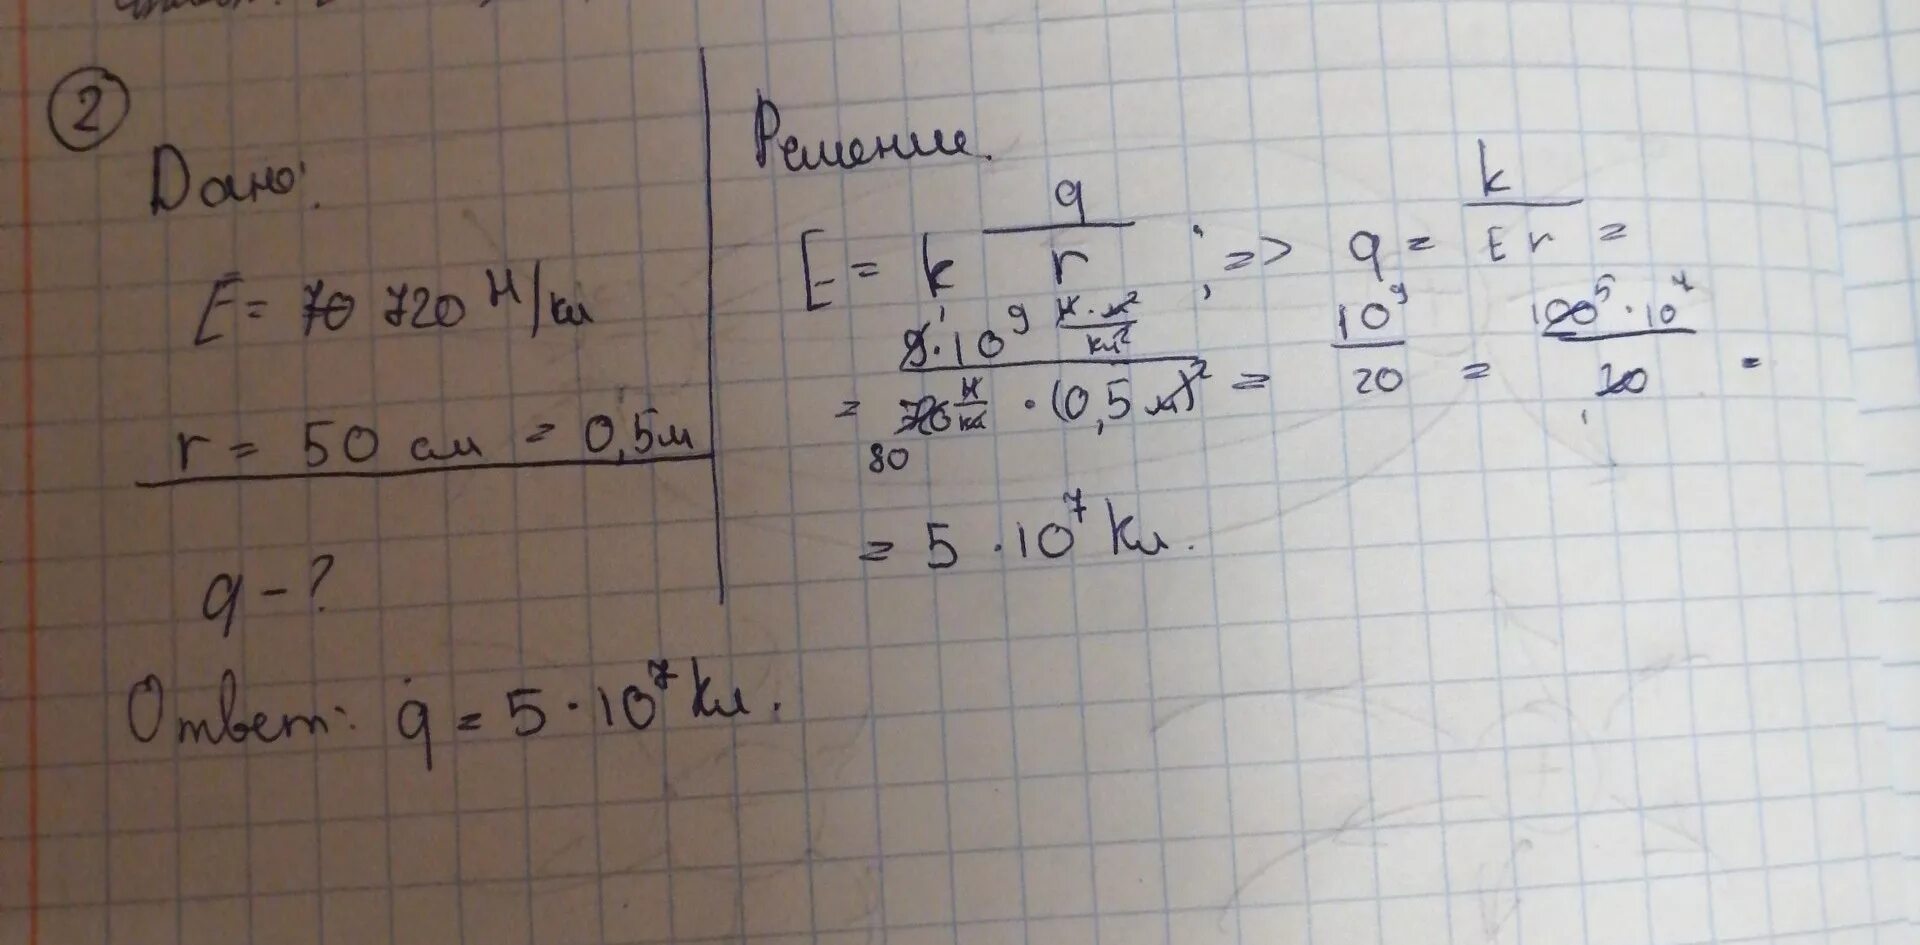 ②
Дано:
E = 70 720 Н/кл
r = 50 см = 0,5м
q - ?
Решение.
E = k q/r ; => q = k/Er =
= 9·10⁹ Н·м²/кл² / 720 Н/кл · (0,5 м)² = 10⁹/20 = 100⁵·10⁷/20 =
80
= 5 · 10⁷ Кл.
Ответ: q = 5 · 10⁷ Кл.